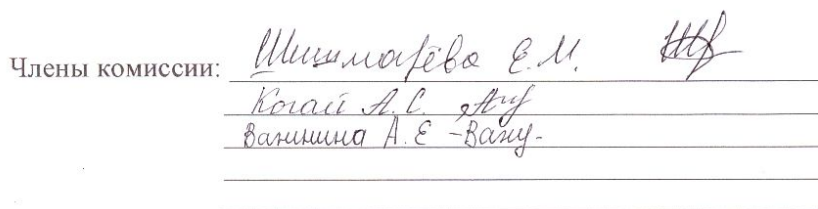 Члены комиссии: Шишмарёва Е.М.
Когай А.С.
Ванинина А.Е